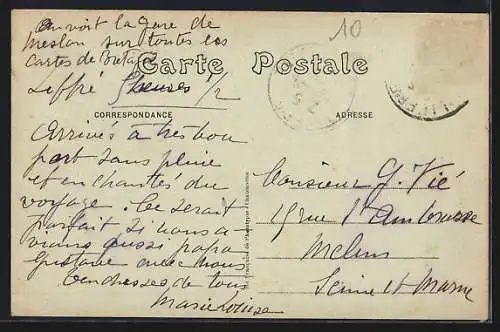 on voit la gare de
Meslan sur toutes les
cartes de
10
Carte Postale
Liffré 5 heures 1/2
CORRESPONDANCE
ADRESSE
Arrivés à très bon
port sans pluie
et enchantés du
voyage. Ce serait
parfait si nous a-
vions aussi papa
Gustave avec nous
Tendresses de tous
Marie Louise
Monsieur G. Vié
15 rue St Ambroise
Melun
Seine et Marne